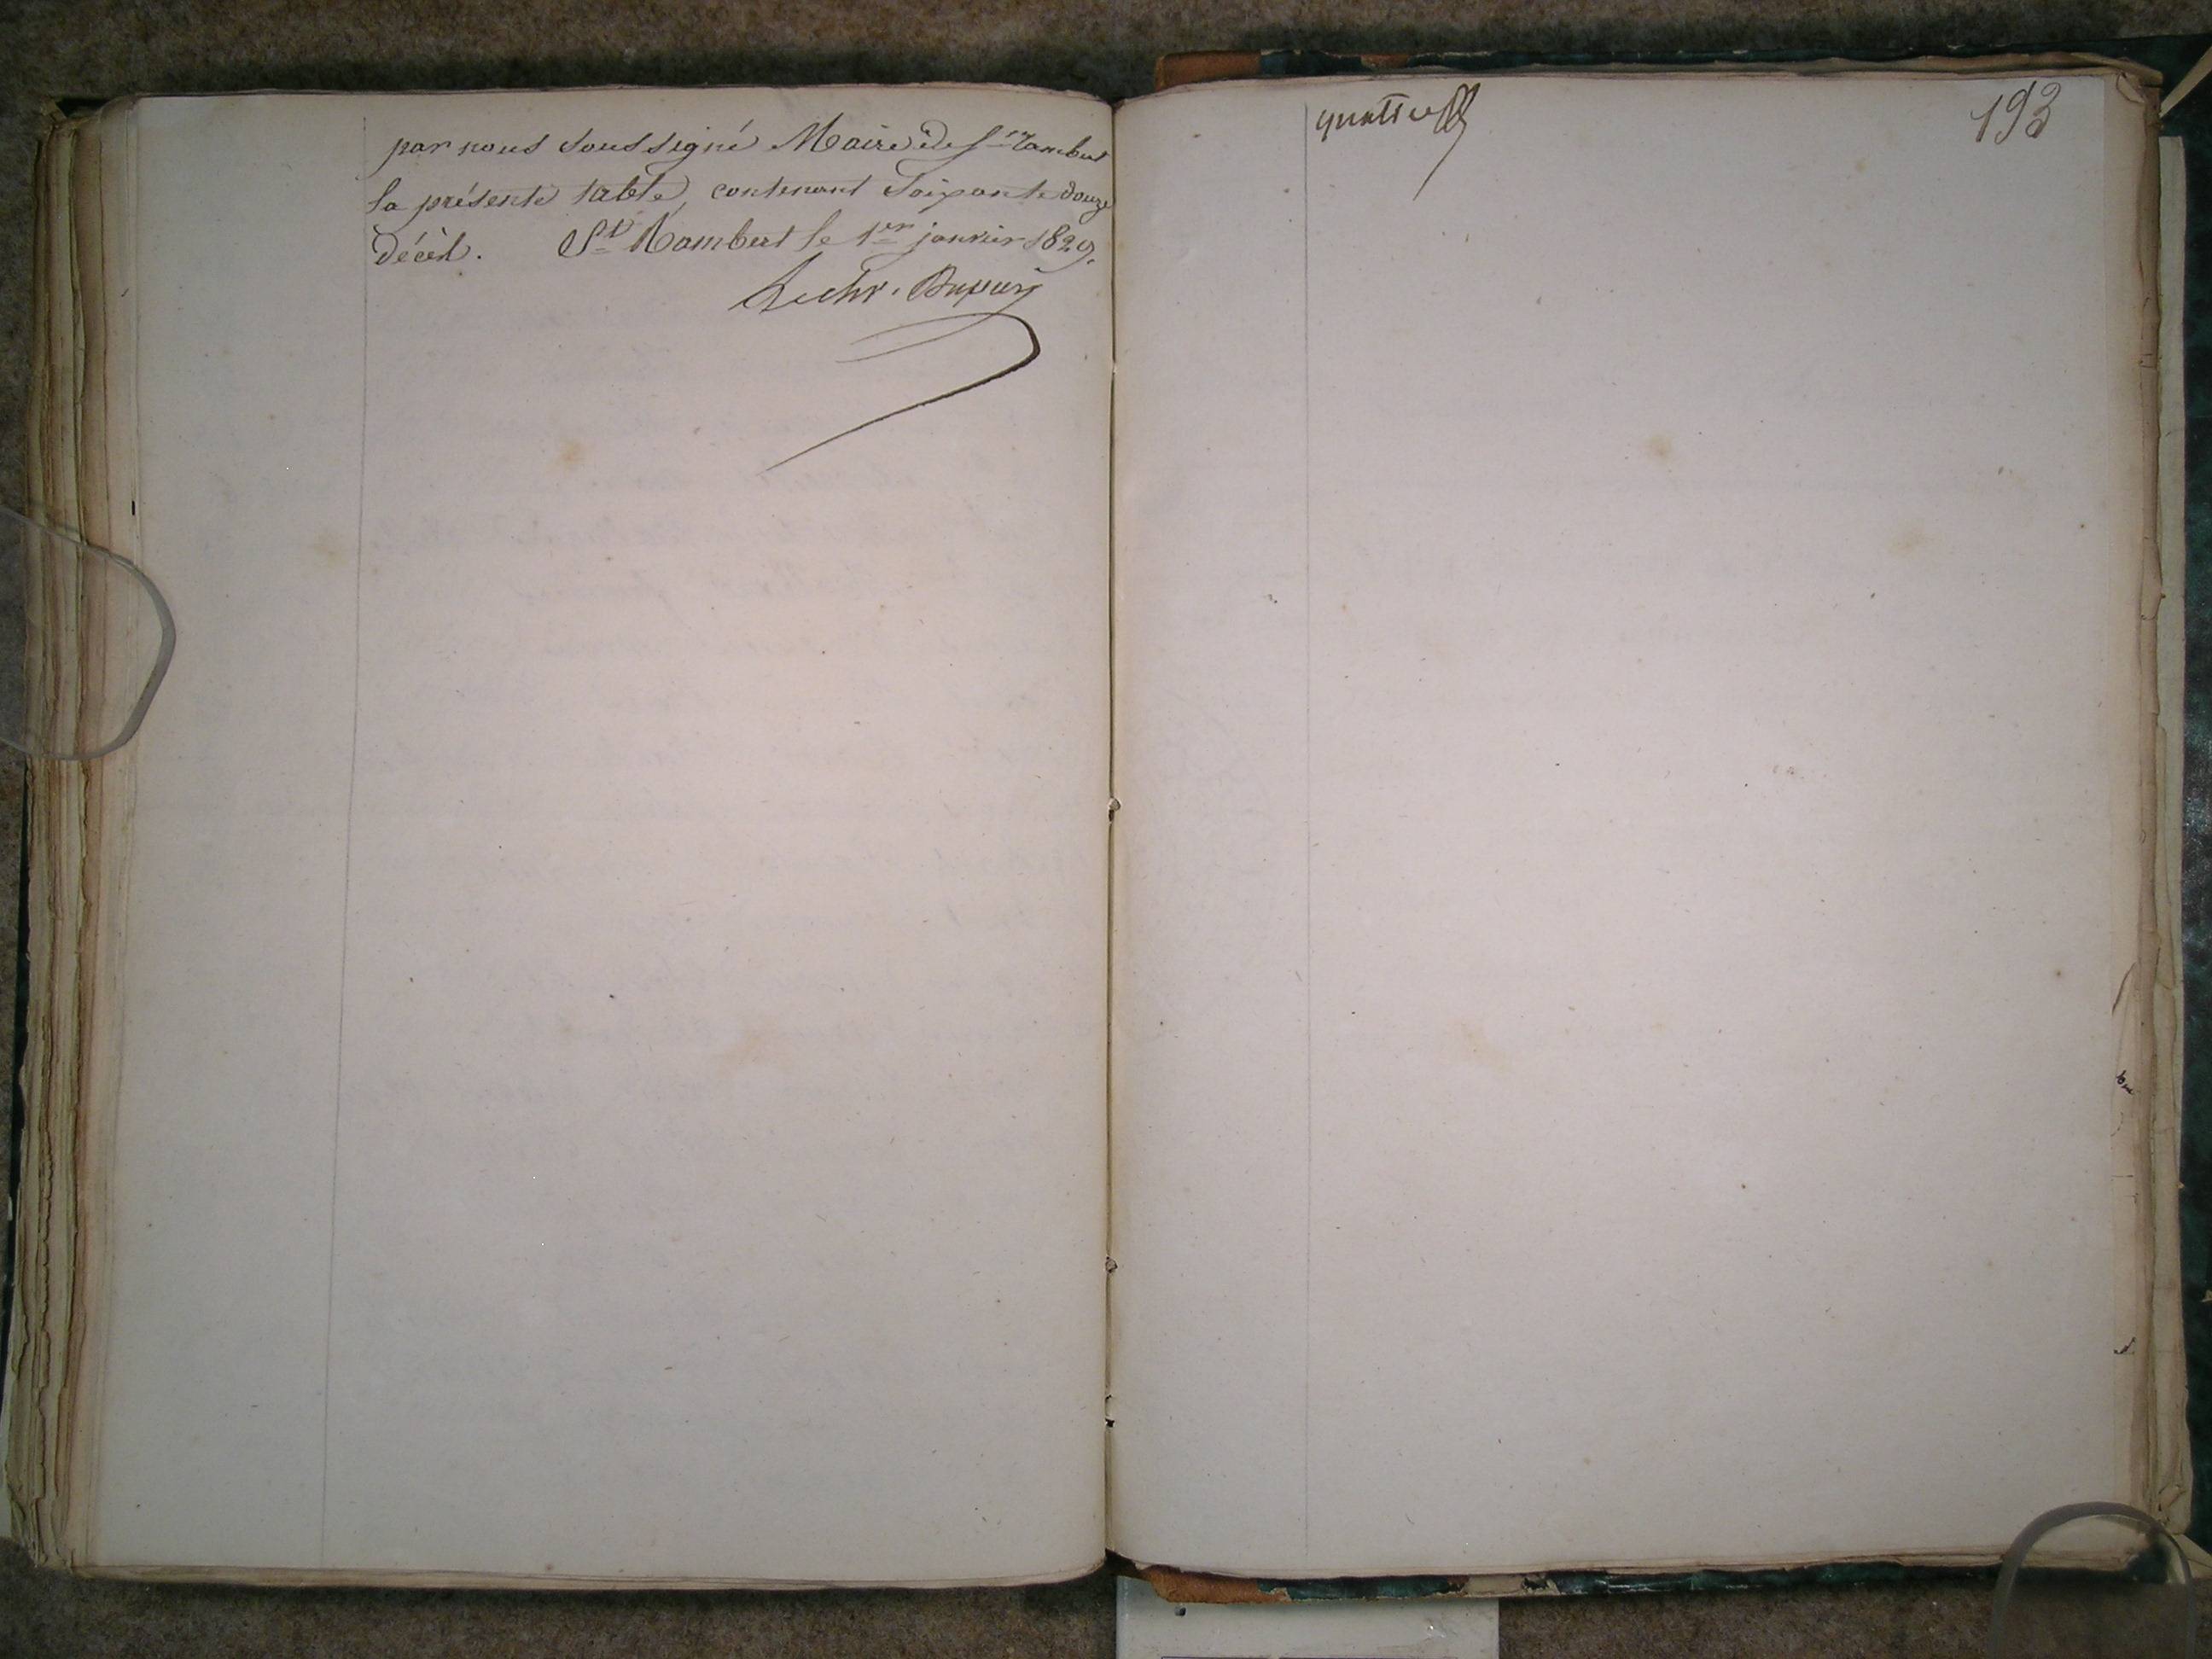 par nous soussigné Maire de St Rambert
la présente table, contenant soixante douze
décès. St Rambert le 1er janvier 1829.
Le chr. Dupuy
quatre
193